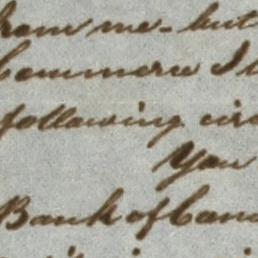 from me - but
Commerce I
following circ
You
Bank of Cana